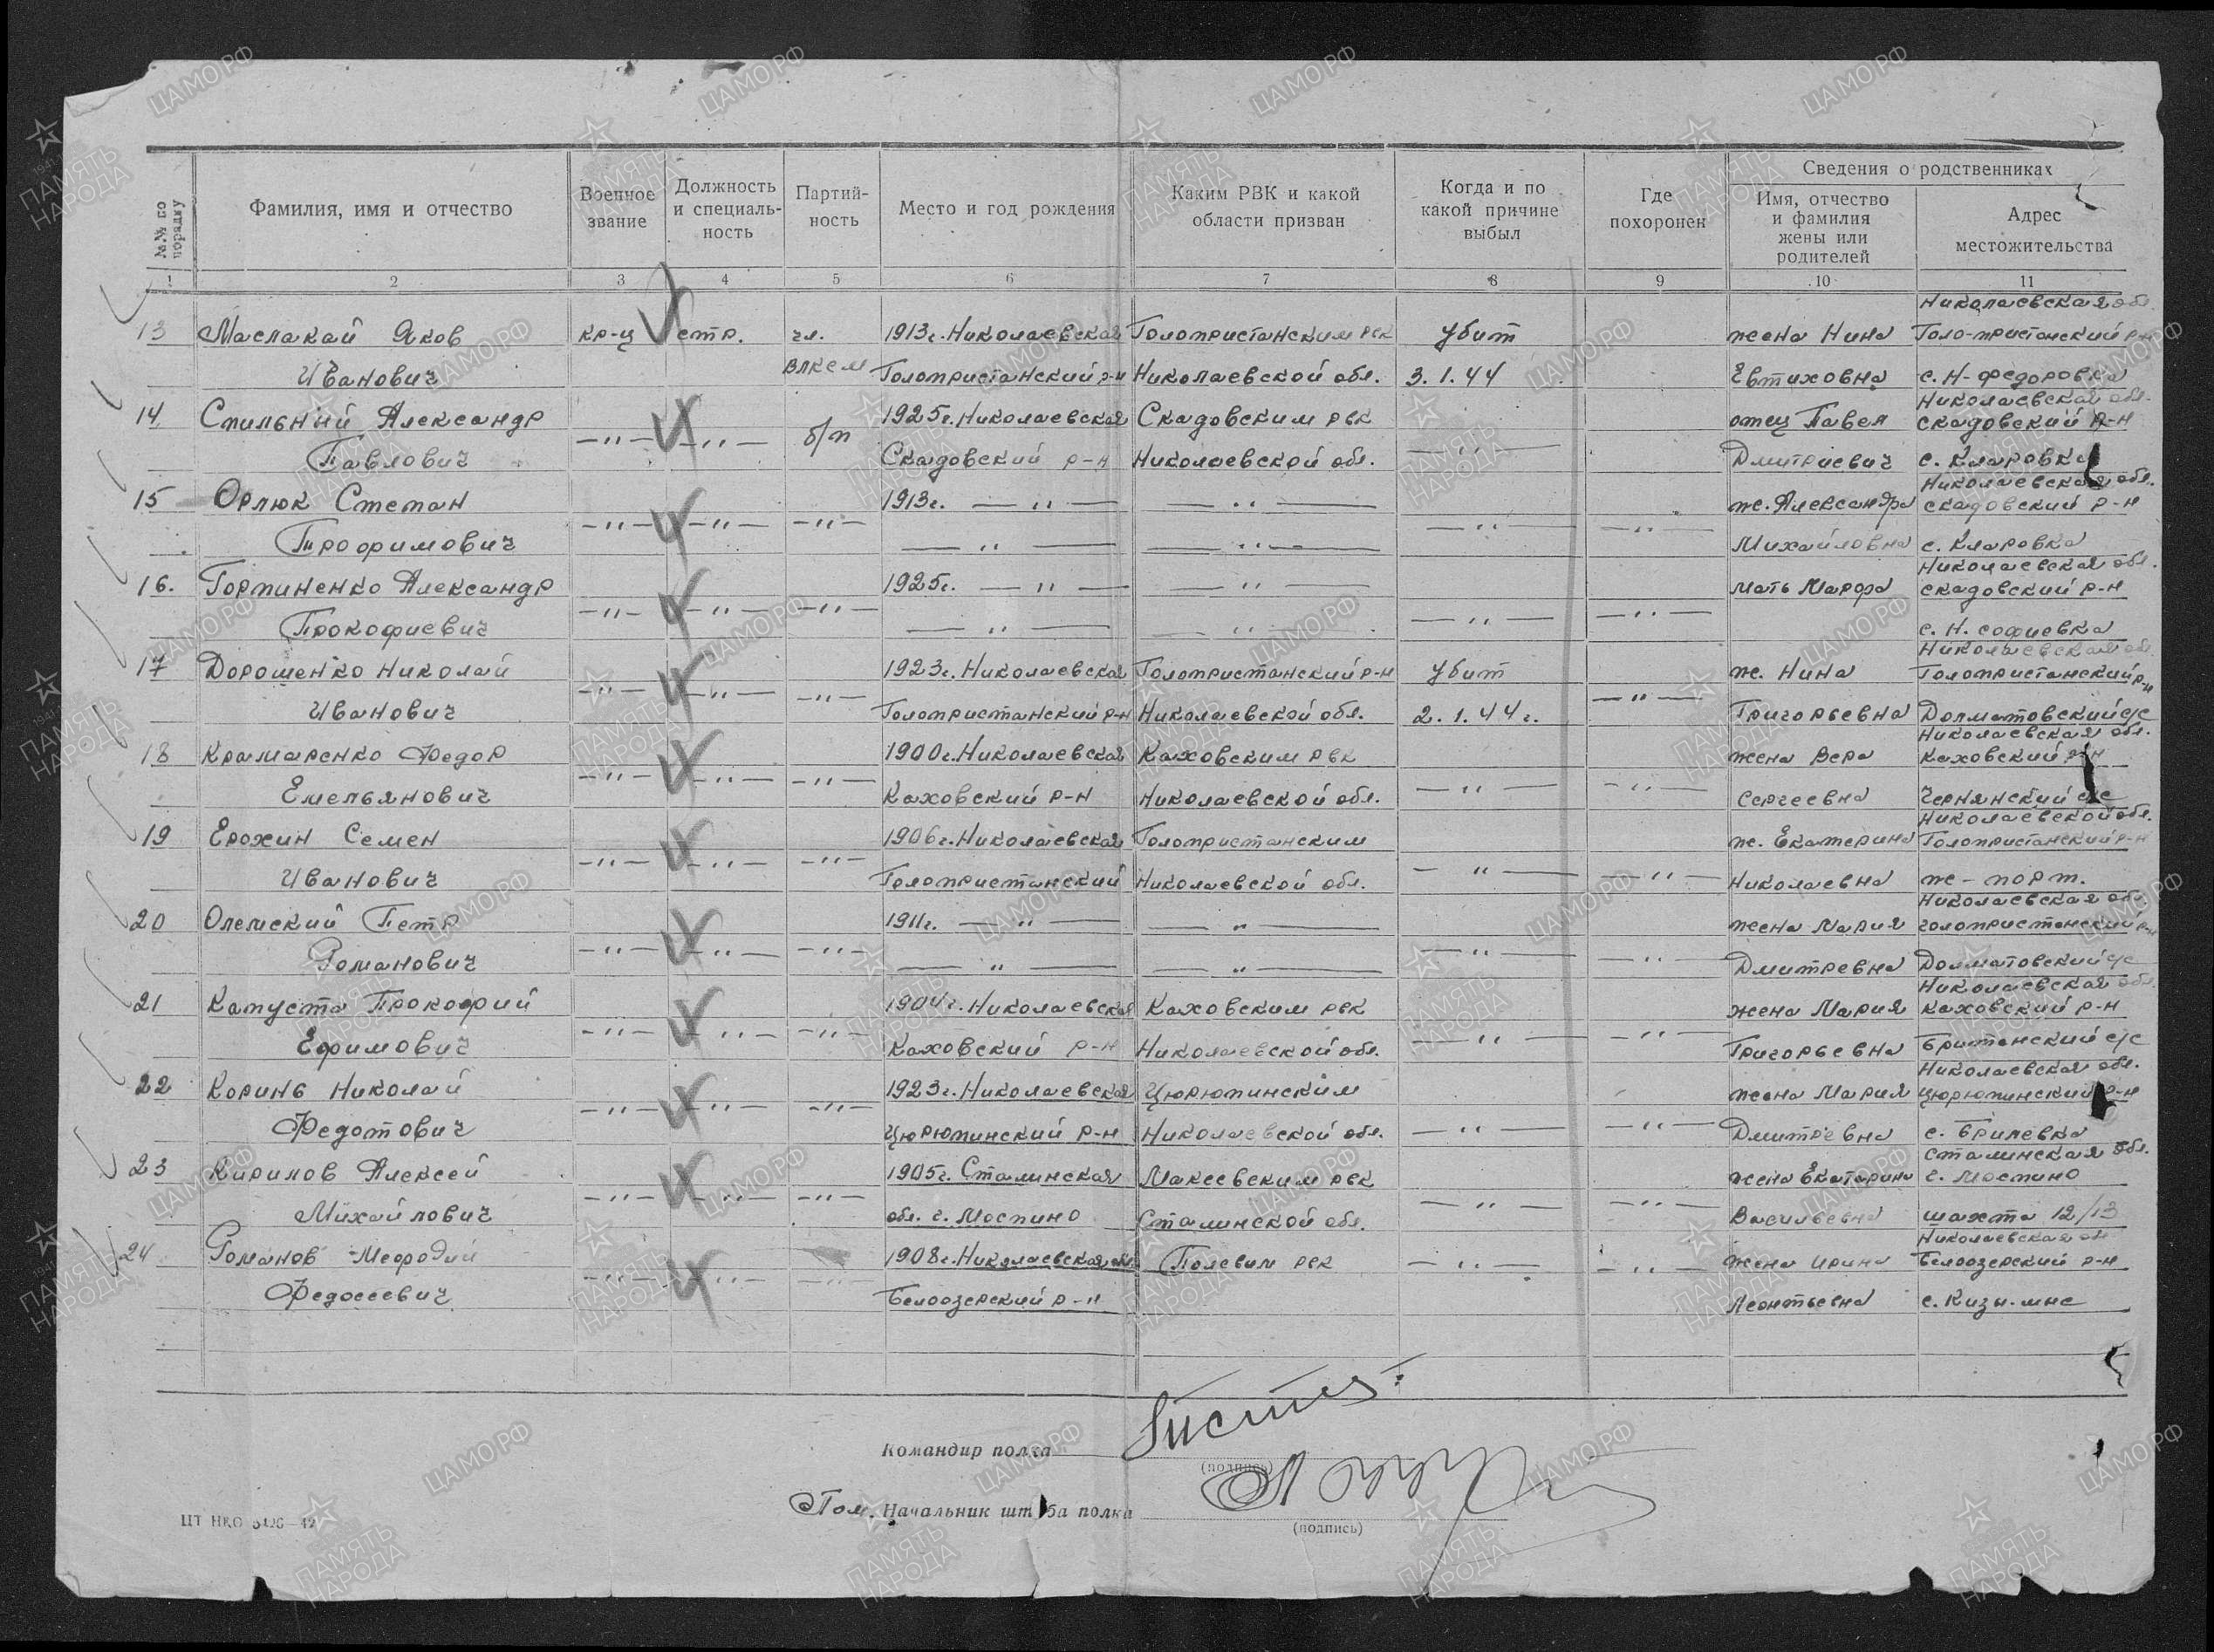 №№ по порядку
Фамилия, имя и отчество
Военное звание
Должность и специаль-ность
Партий-ность
Место и год рождения
Каким РВК и какой области призван
Когда и по какой причине выбыл
Где похоронен
Сведения о родственниках
Имя, отчество и фамилия жены или родителей
Адрес местожительства
1 2 3 4 5 6 7 8 9 10 11
Николаевская обл.
13 Маслакай Яков кр-ц стр. чл. 1913г. Николаевская Голопристанским рвк убит жена Нина Голо-пристанский р-н
Иванович ВЛКСМ Голопристанский р-н Николаевской обл. 3.1.44 Евтиховна с. Н-Федоровка
Николаевская обл.
14 Спильный Александр —"— —"— б/п 1925г. Николаевская Скадовским рвк отец Павел скадовский р-н
Павлович Скадовский р-н Николаевской обл. —"— Дмитриевич с. Кларовка
Николаевская обл.
15 Орлюк Степан —"— —"— —"— 1913г. —"— —"— —"— —"— ж. Александра скадовский р-н
Трофимович —"— —"— Михайловна с. Кларовка
Николаевская обл.
16. Горпиненко Александр —"— —"— —"— 1925г. —"— —"— —"— —"— мать Марфа скадовский р-н
Прокофиевич —"— —"— с. Н. софиевка
Николаевская обл.
17 Дорошенко Николай —"— —"— —"— 1923г. Николаевская Голопристанский р-н убит —"— ж. Нина Голопристанский р-н
Иванович Голопристанский р-н Николаевской обл. 2.1.44г. Григорьевна Долматовский с/с
Николаевская обл.
18 Крамаренко Федор —"— —"— —"— 1900г. Николаевская Каховским рвк жена Вера Каховский р-н
Емельянович Каховский р-н Николаевской обл. —"— —"— Сергеевна Чернянский с/с
Николаевской обл.
19 Ерохин Семен —"— —"— —"— 1906г. Николаевская Голопристанским ж. Екатерина Голопристанский р-н
Иванович Голопристанский Николаевской обл. —"— —"— Николаевна ж-порт.
Николаевская обл.
20 Олемский Петр —"— —"— —"— 1911г. —"— —"— —"— —"— жена Мария голопристанский р-н
Романович —"— —"— Дмитревна Долматовский с/с
Николаевская обл.
21 Капуста Прокофий —"— —"— —"— 1904г. Николаевская Каховским рвк жена Мария Каховский р-н
Ефимович Каховский р-н Николаевской обл. —"— —"— Григорьевна Британский с/с
Николаевская обл.
22 Коринь Николай —"— —"— —"— 1923г. Николаевская Цюрюпинским жена Мария Цюрюпинский р-н
Федотович Цюрюпинский р-н Николаевской обл. —"— —"— Дмитревна с. Брилевка
Сталинская обл.
23 Кирилов Алексей —"— —"— —"— 1905г. Сталинская Макеевским рвк —"— —"— жена Екатарина г. Моспино
Михайлович обл. г. Моспино Сталинской обл. Васильевна шахта 12/13
Николаевская обл
24 Романов Мефодий —"— —"— —"— 1908г. Николаевская обл Полевим рвк —"— —"— жена Ирина Белоозерский р-н
Федосеевич Белоозерский р-н Леонтьевна
Командир полка
(подпись)
Пом. Начальник штаба полка
(подпись)
ЦАМО.РФ
1941
ПАМЯТЬ НАРОДА